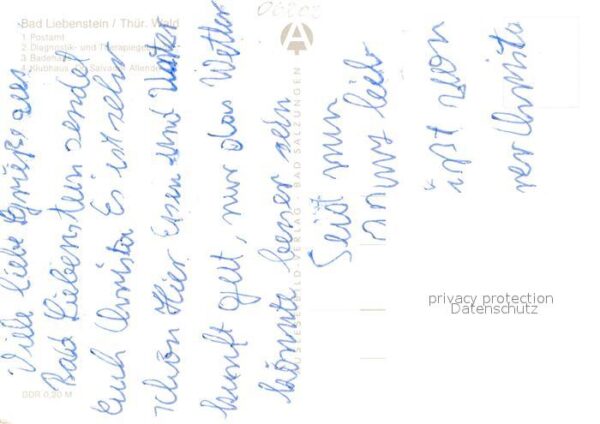 Bad Liebenstein / Thür. Wald
1 Postamt
2 Diagnostik- und Therapiegebäude
3 Badehaus
4 Klubhaus Dr. Salvador Allende
AUSLESE-BILD-VERLAG · BAD SALZUNGEN
DDR 0,20 M
Viele liebe Grüße aus
Bad Liebenstein sendet
Euch Christa Es ist sehr
schön Hier Essen und Unter
kunft gut, nur das Wetter
könnte besser sein
Seid nun
lieb
von
Christa
privacy protection
Datenschutz